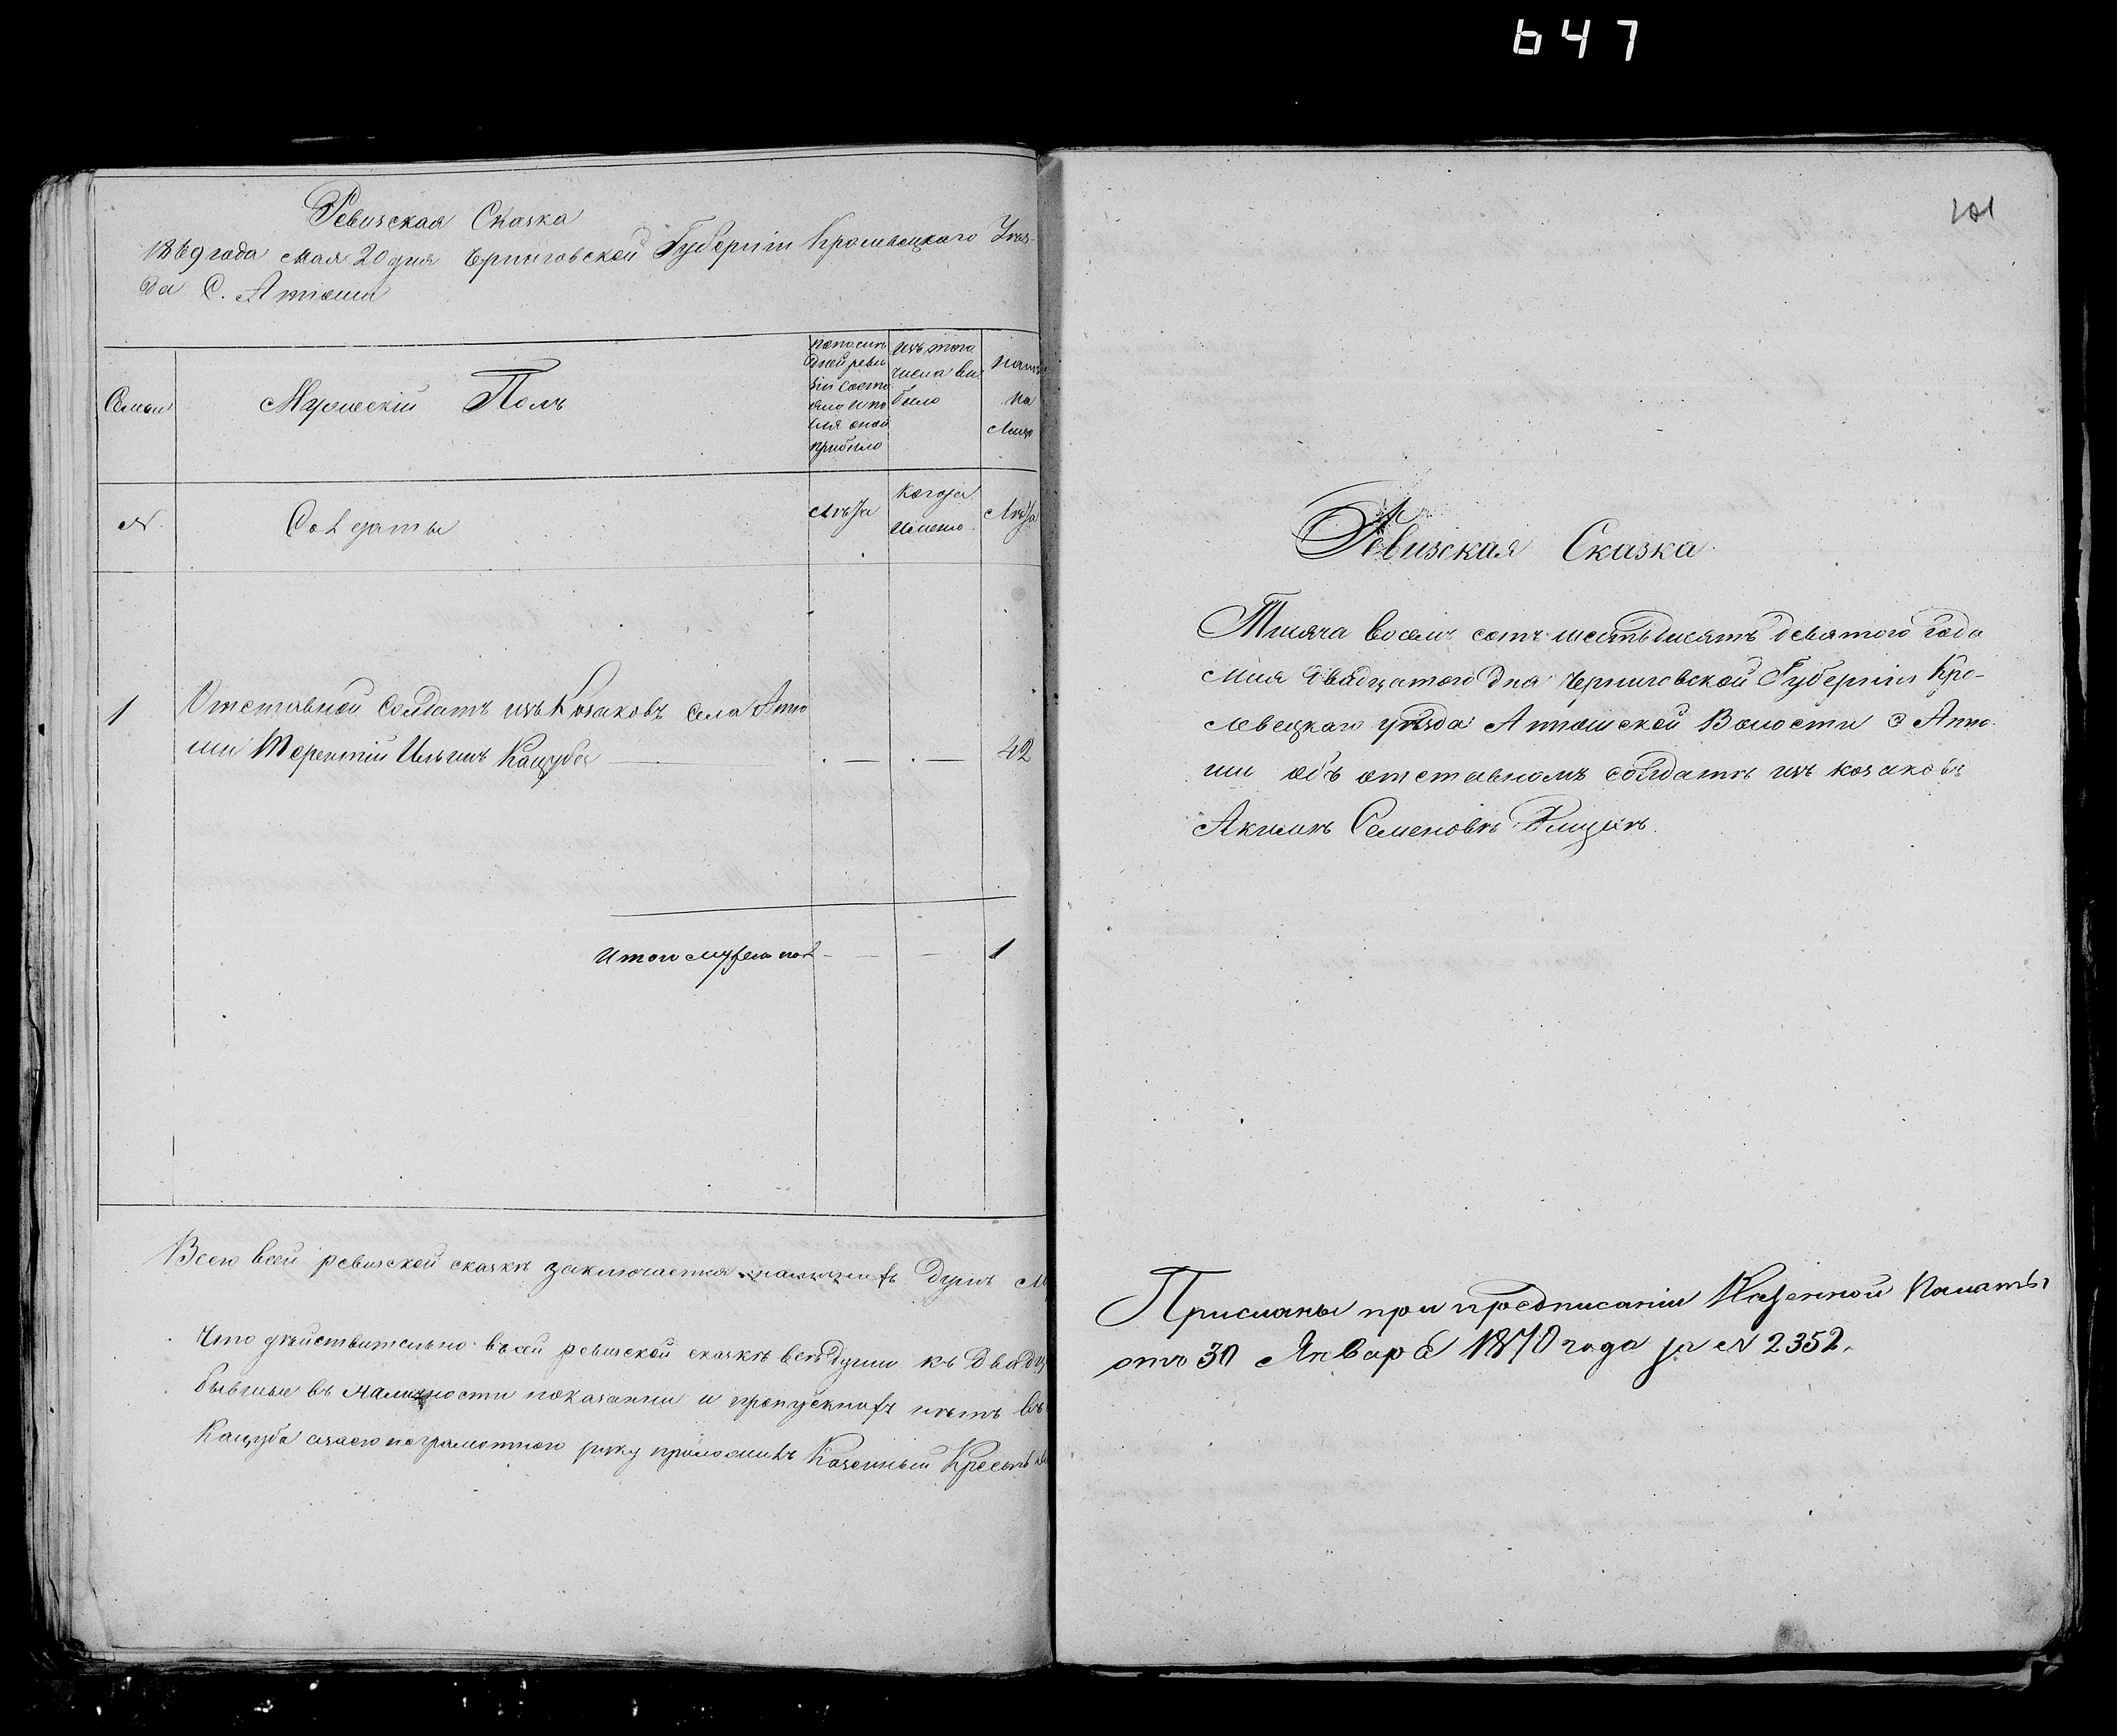 647
Ревизская Сказка
1869 года Мая 20 дня Черниговской Губерніи Кролевецкаго Уѣз-
да С. Атюши
Семьи
Мужескій Полъ
изъ того
числа вы
было
на
Лицо
N.
Солдаты
Лѣта
Когда
именно
Лѣта
1
Отставной Солдатъ изъ Козаковъ Села Атю
ши Терентій Ильинъ Кацуба
42
Итого мужеска пол
1
Всего въ сей ревизской сказкѣ заключается душъ м
Что дѣйствительно въ сей ревизской сказкѣ всѣ души къ Двадц
бывшіе въ наличности показанны и пропускныхъ нѣтъ въ
Кацуба руку приложилъ Казенный
101
Ревизская Сказка
Тысяча восемь сотъ шестьдесятъ девятого года
Мая двадцатого дня Черниговской Губерніи Кро-
левецкаго уѣзда Атюшской Волости С Атю
ши объ отставномъ солдатѣ изъ козаковъ
Акимѣ Семеновѣ
Присланы при предписаніи Казенной Палаты
отъ 30 Января 1870 года за N 2352.